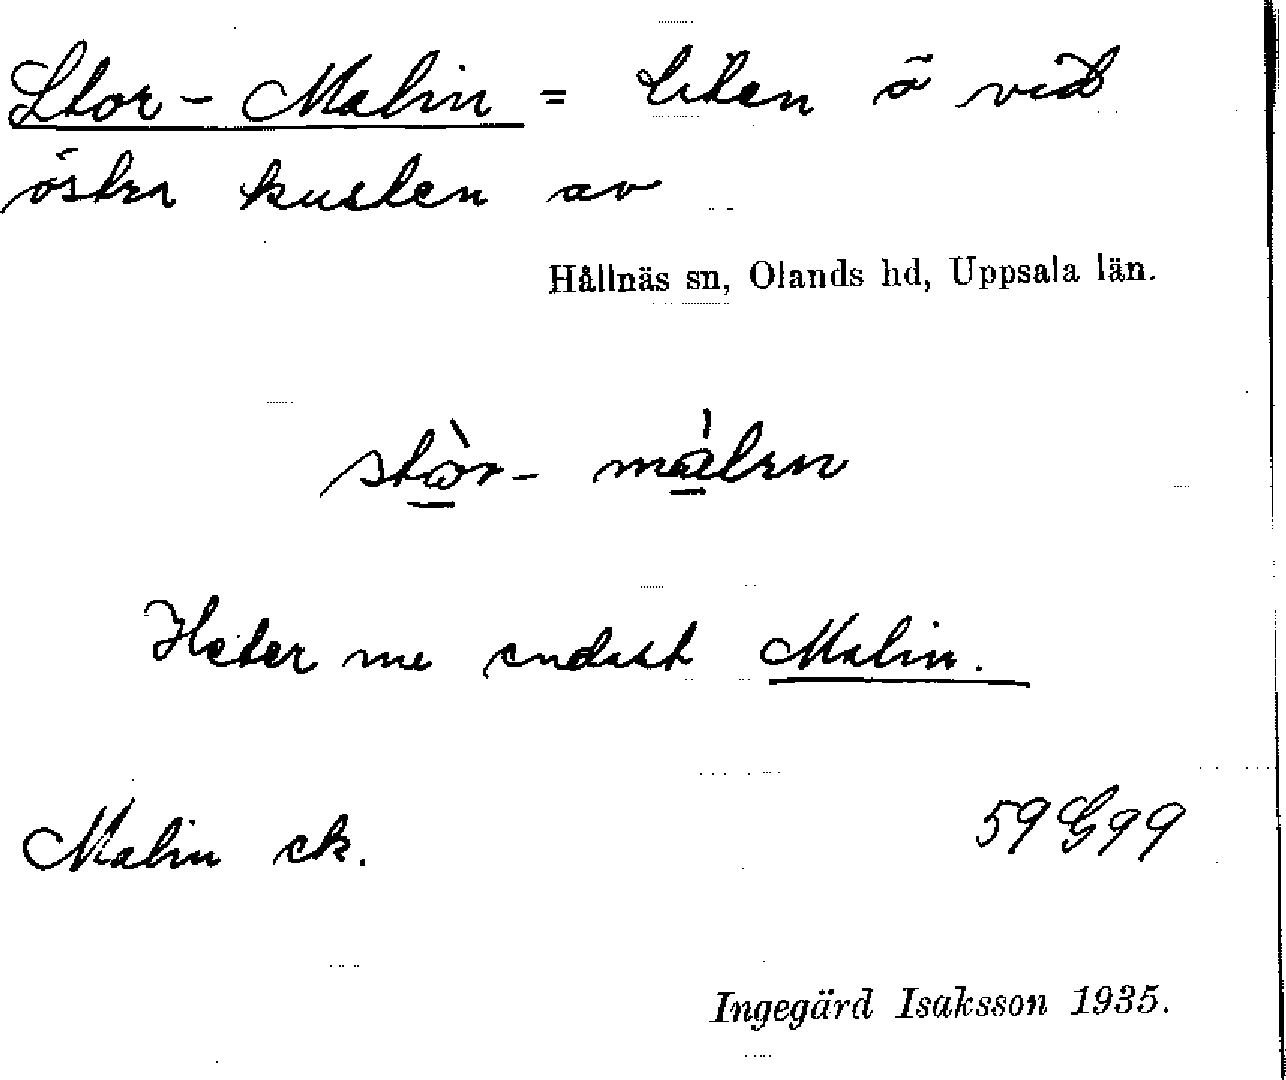 Stor-Malin = liten ö vid
östra kusten av
Hållnäs sn, Olands hd, Uppsala län.
stòr- málen
Heter nu endast Malin.
Malin ek.
59 G 99
Ingegärd Isaksson 1935.